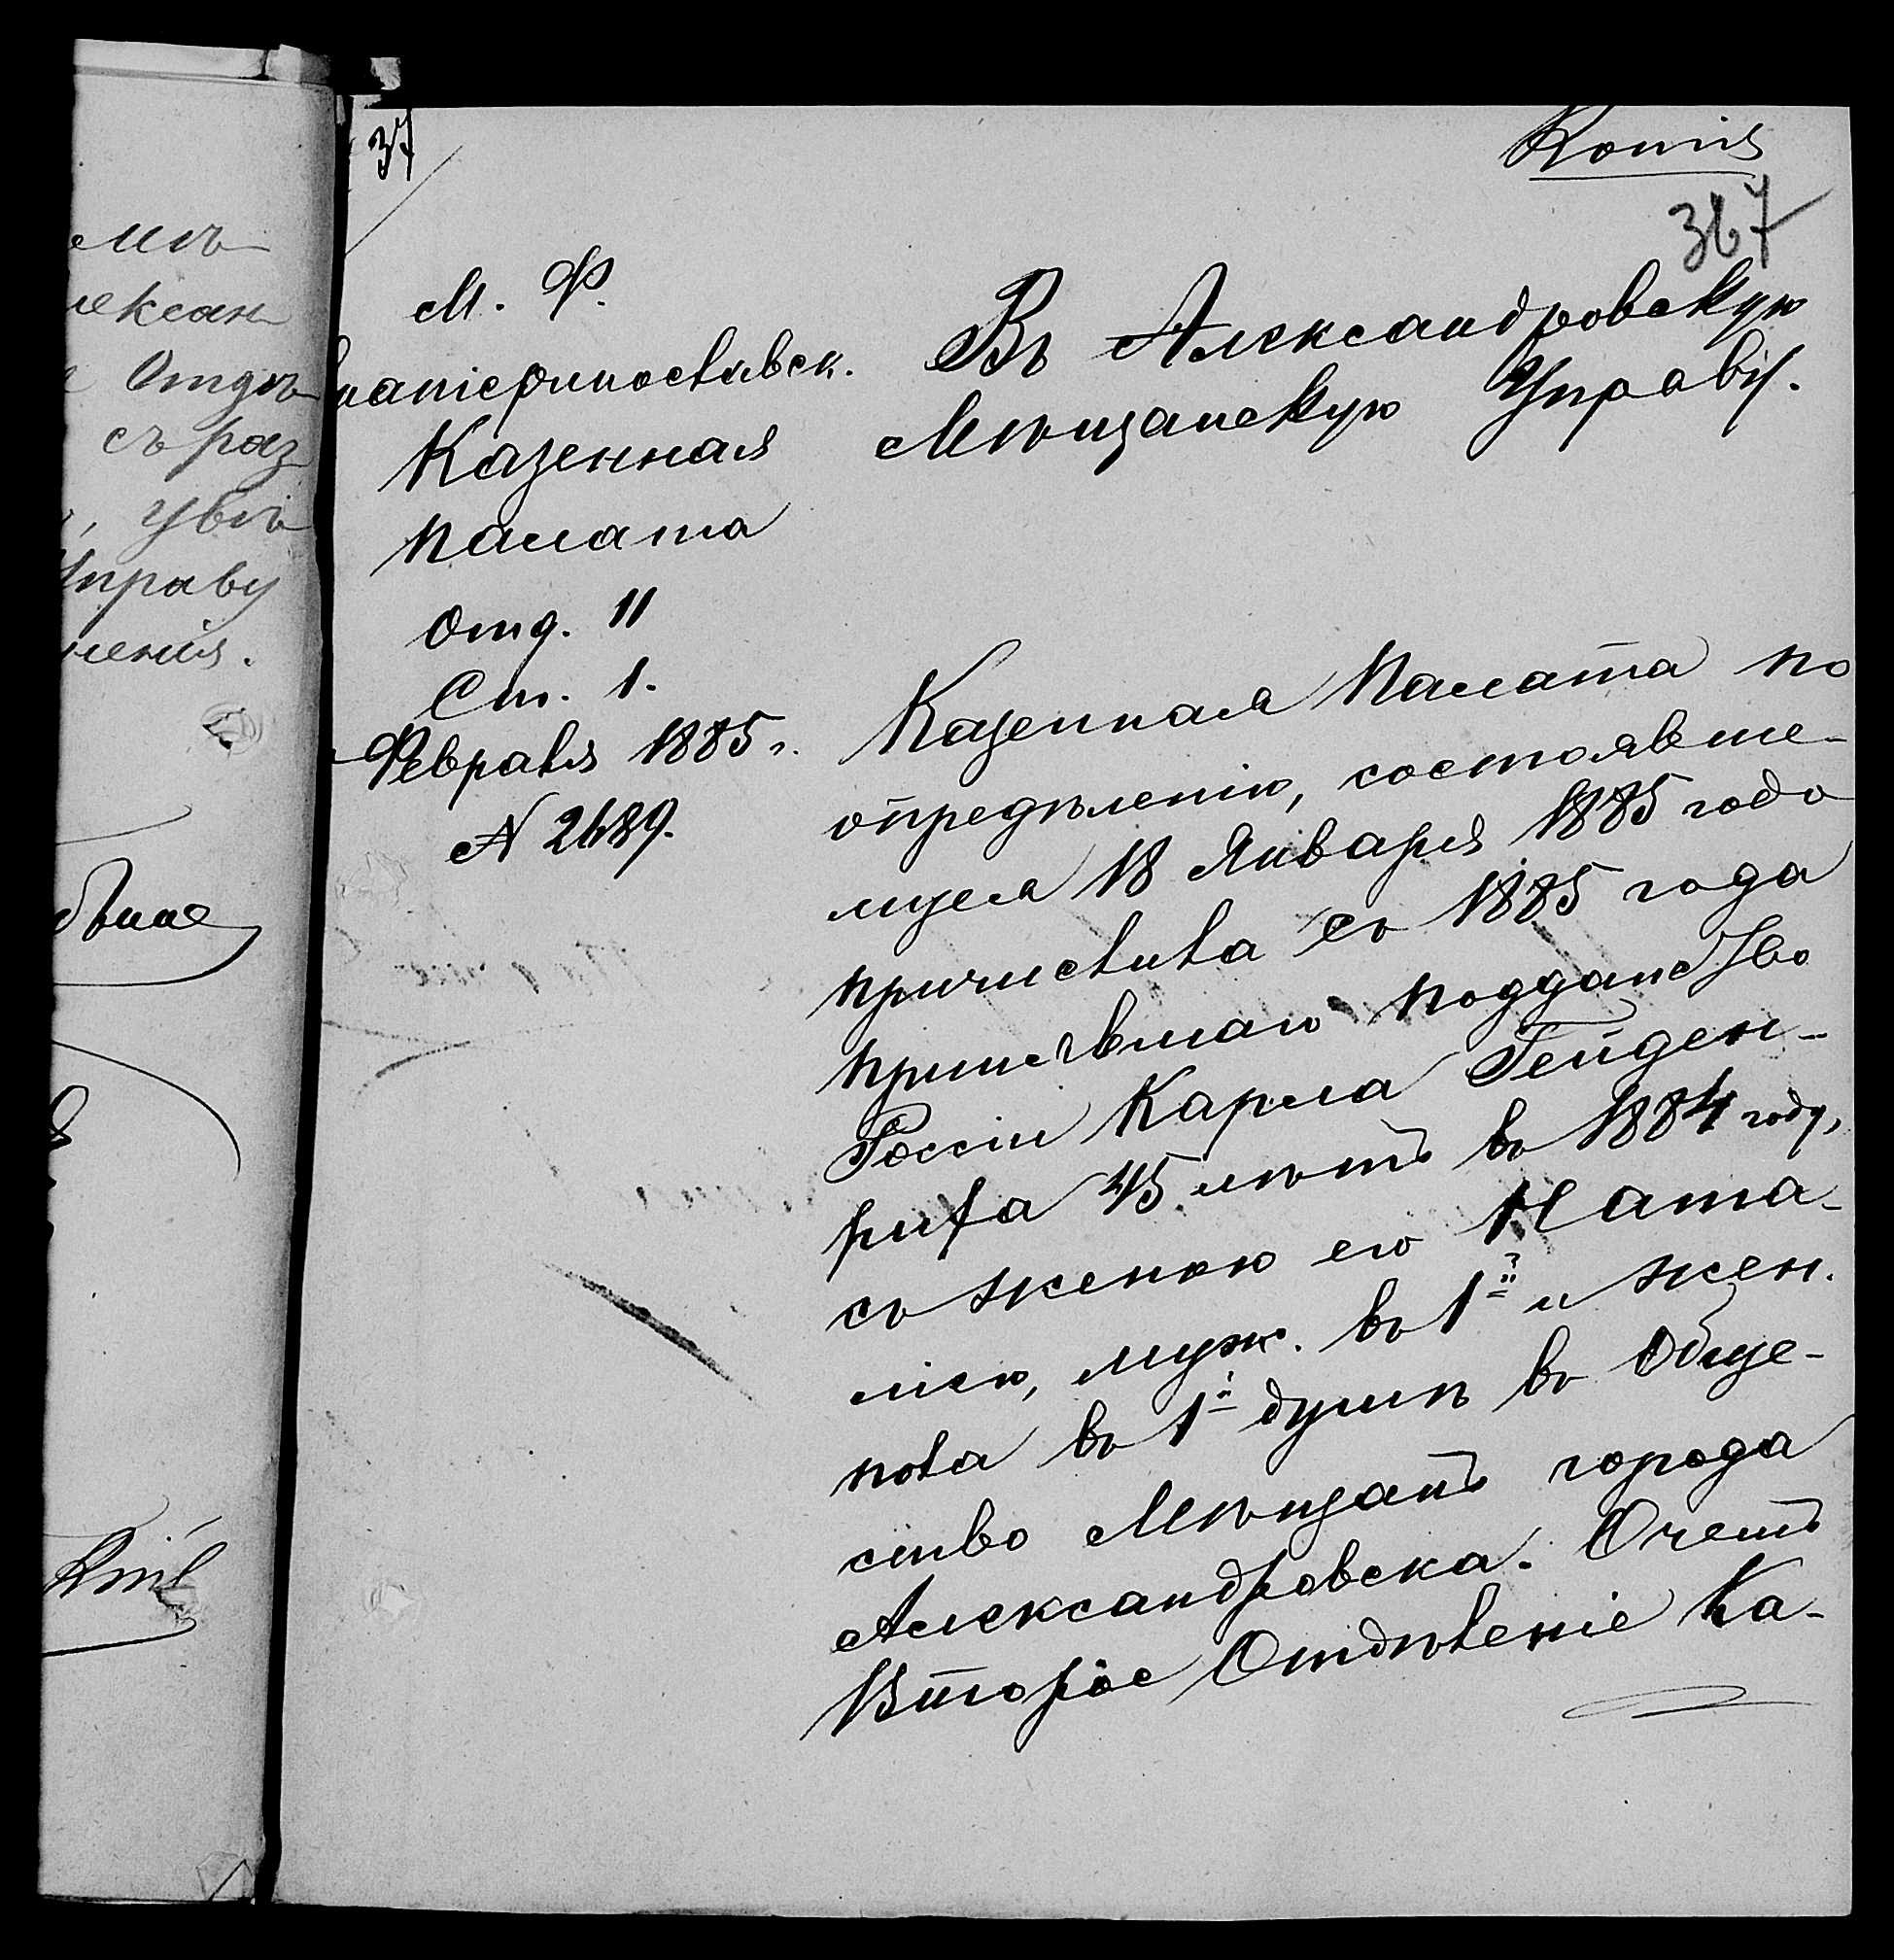 емъ
лексан
Отдѣ
съ раз
, увѣ
Управу
ленія.
37
Копія
367
М. Ф.
Екатеринославск.
Казенная
Палата
Отд. II
Ст. 1.
Февраля 1885 г.
N 2489.
Въ Александровскую
Мѣщанскую Управу.
Казенная Палата по
опредѣленію, состоявше-
муся 18 Января 1885 года
причислила съ 1885 года
принявшаго подданство
Россіи Карла Гейден-
риха 45 лѣтъ въ 1884 году,
съ женою его Ната-
ліею, муж. въ 1й и жен.
пола въ 1й душѣ въ Обще-
ство Мѣщанъ города
Александровска. О чемъ
Второе Отдѣленіе Ка-